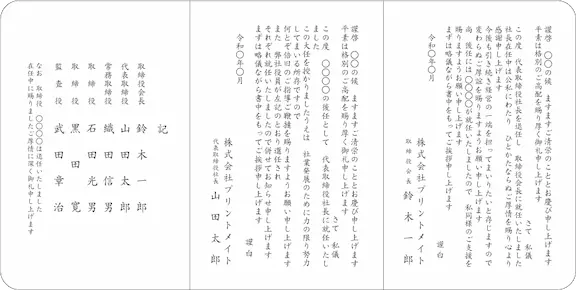 謹啓　〇〇の候　ますますご清栄のこととお慶び申し上げます
平素は格別のご高配を賜り厚く御礼申し上げます
さて　私儀
この度　代表取締役社長を退任し　取締役会長に就任いたしました
社長在任中は公私にわたり　ひとかたならぬご厚情を賜り心より
感謝申し上げます
今後も引き続き経営の一端を担ってまいりたいと存じますので
変わらぬご厚誼を賜りますようお願い申し上げます
尚　後任には〇〇〇〇が就任いたしましたので　私同様のご支援を
賜りますようお願い申し上げます
まずは略儀ながら書中をもってご挨拶申し上げます
謹白
令和〇年〇月
株式会社プリントメイト
取締役会長　鈴木一郎
謹啓　〇〇の候　ますますご清栄のこととお慶び申し上げます
平素は格別のご高配を賜り厚く御礼申し上げます
さて　私儀
この度　〇〇〇〇の後任として　代表取締役社長に就任いたし
ました
この大任を授かりましたうえは　社業発展のために力の限り努力
してまいる所存ですので
何とぞ倍旧のご指導ご鞭撻を賜りますようお願い申し上げます
また　弊社役員が左記のとおり選任され
それぞれ就任いたしましたので併せてお知らせ申し上げます
まずは略儀ながら書中をもってご挨拶申し上げます
謹白
令和〇年〇月
株式会社プリントメイト
代表取締役社長　山田太郎
記
取締役会長　鈴木一郎
代表取締役　山田太郎
常務取締役　織田信男
取締役　石田光男
取締役　黒田寛
監査役　武田章治
なお　取締役　〇〇〇〇は退任いたしました
在任中に賜りましたご厚情に深く御礼申し上げます